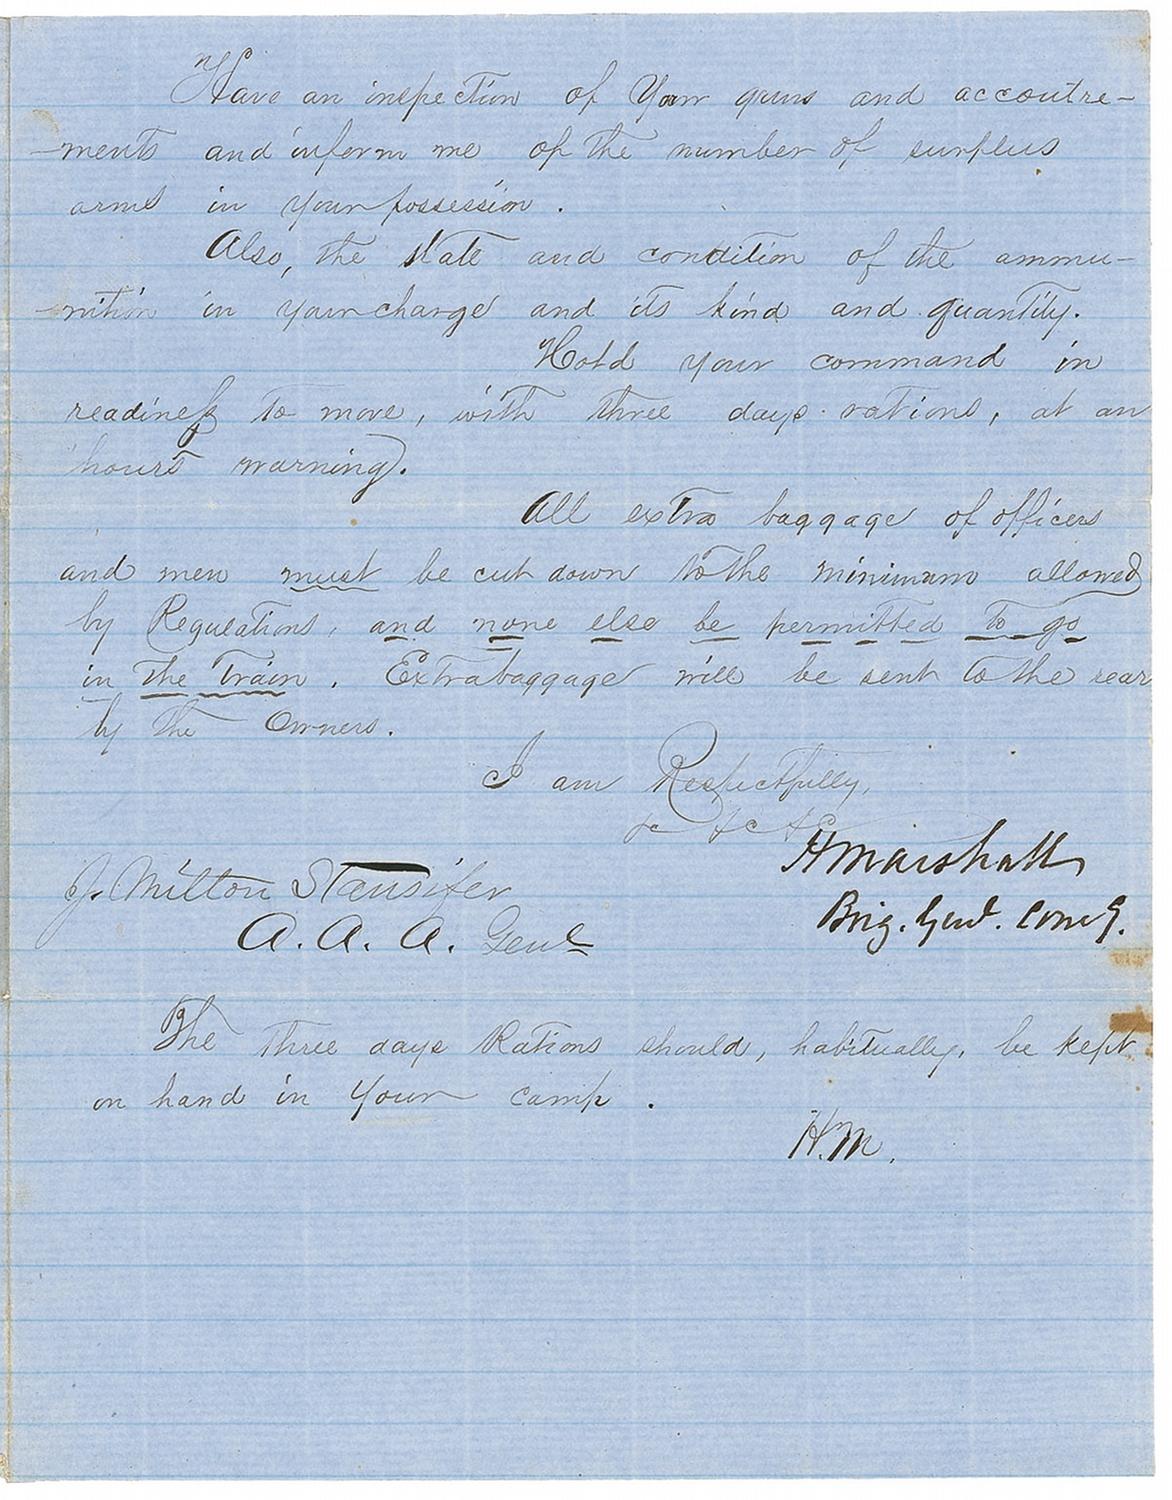 Have an inspection of your guns and accoutre-
-ments and inform me of the number of surplus
arms in your possession.
Also, the state and condition of the ammu-
-nition in your charge and its kind and quantity.
Hold your command in
readiness to move, with three days rations, at an
hour's warning.
All extra baggage of officers
and men must be cut down to the minimum allowed
by Regulations, and none else be permitted to go
in the train. Extra baggage will be sent to the rear
by the Owners.
I am Respectfully,
&c &c
H Marshall
J. Milton Stansifer
Brig. Genl. Comg.
A. A. A. Genl
The three days Rations should, habitually, be kept
on hand in your camp.
H.M.